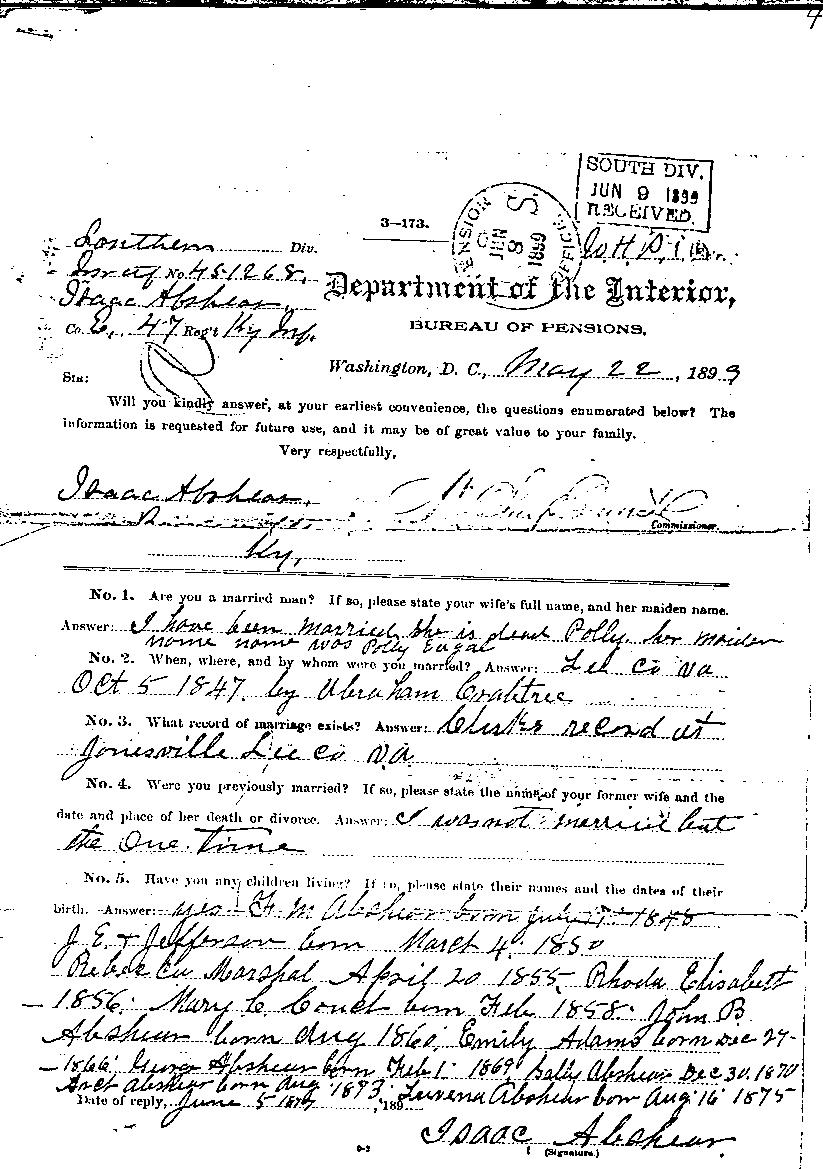 4
SOUTH DIV.
JUN 9 1899
RECEIVED.
3—173.
PENSION OFFICE
JUN 8 1899
U. S.
Southern Div.
No. 451268.
Isaac Abshear,
Co. E, 47 Reg't Ky Inf.
Department of the Interior,
BUREAU OF PENSIONS,
Washington, D. C., May 22, 1899
SIR:
Will you kindly answer, at your earliest convenience, the questions enumerated below? The
information is requested for future use, and it may be of great value to your family.
Very respectfully,
Isaac Abshear,
Commissioner.
Ky,
No. 1. Are you a married man? If so, please state your wife's full name, and her maiden name.
Answer: I have been married she is dead Polly her maiden
name name was Polly
No. 2. When, where, and by whom were you married? Answer: Lee Co va
Oct 5 1847 by Abraham Crabtree
No. 3. What record of marriage exists? Answer: Clerks record at
Jonesville Lee co va
No. 4. Were you previously married? If so, please state the name of your former wife and the
date and place of her death or divorce. Answer: I was not married but
the One time
No. 5. Have you any children living? If so, please state their names and the dates of their
birth. Answer: yes F. M Abshear born July 1848
J. E. + Jefferson born March 4, 1850
Rebecca Marshal April 20 1855, Rhoda Elisabeth
1856, Mary C Couch born Feb 1858. John B
Abshear born Aug 1860, Emily Adams born Dec 27
1866, George Abshear born Feb 1 1869 Sally Abshear Dec 30, 1870
abshear born Aug 1873, Luvena Abshear born Aug 16 1875
Date of reply, June 5 1899, 189
Isaac Abshear.
(Signature.)